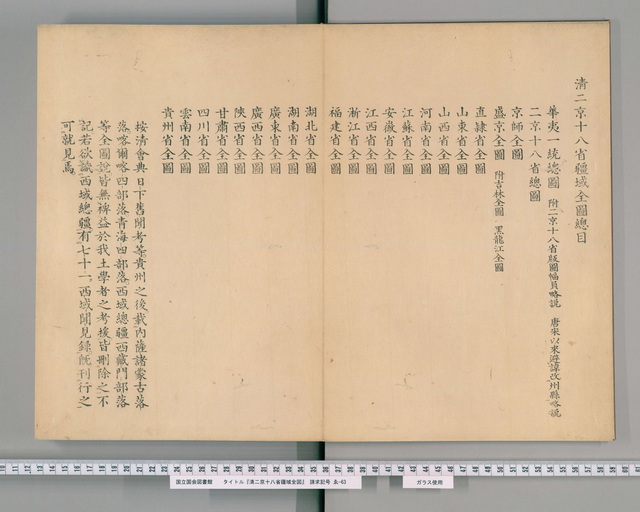 清二京十八省疆域全圖總目
華夷一統總圖 附二京十八省級圖幅員略說 唐宋以來避諱改州縣略說
二京十八省總圖
京師全圖
盛京全圖 附吉林全圖 黑龍江全圖
直隷省全圖
山東省全圖
山西省全圖
河南省全圖
江蘇省全圖
安徽省全圖
江西省全圖
浙江省全圖
福建省全圖
湖北省全圖
湖南省全圖
廣東省全圖
廣西省全圖
陝西省全圖
甘肅省全圖
四川省全圖
雲南省全圖
貴州省全圖
按清會典日下舊聞考等貴州之後載內薩諸蒙古落
落喀爾喀四部落青海四部落西域總疆西藏門部落
等全圖說皆無裨益於我土學者之考援皆刪除之不
記若欲識西域總疆有七十一西域聞見錄既刊行之
可就見焉
国立国会図書館 タイトル『清二京十八省疆域全図』 請求記号 ゑ-63
ガラス使用